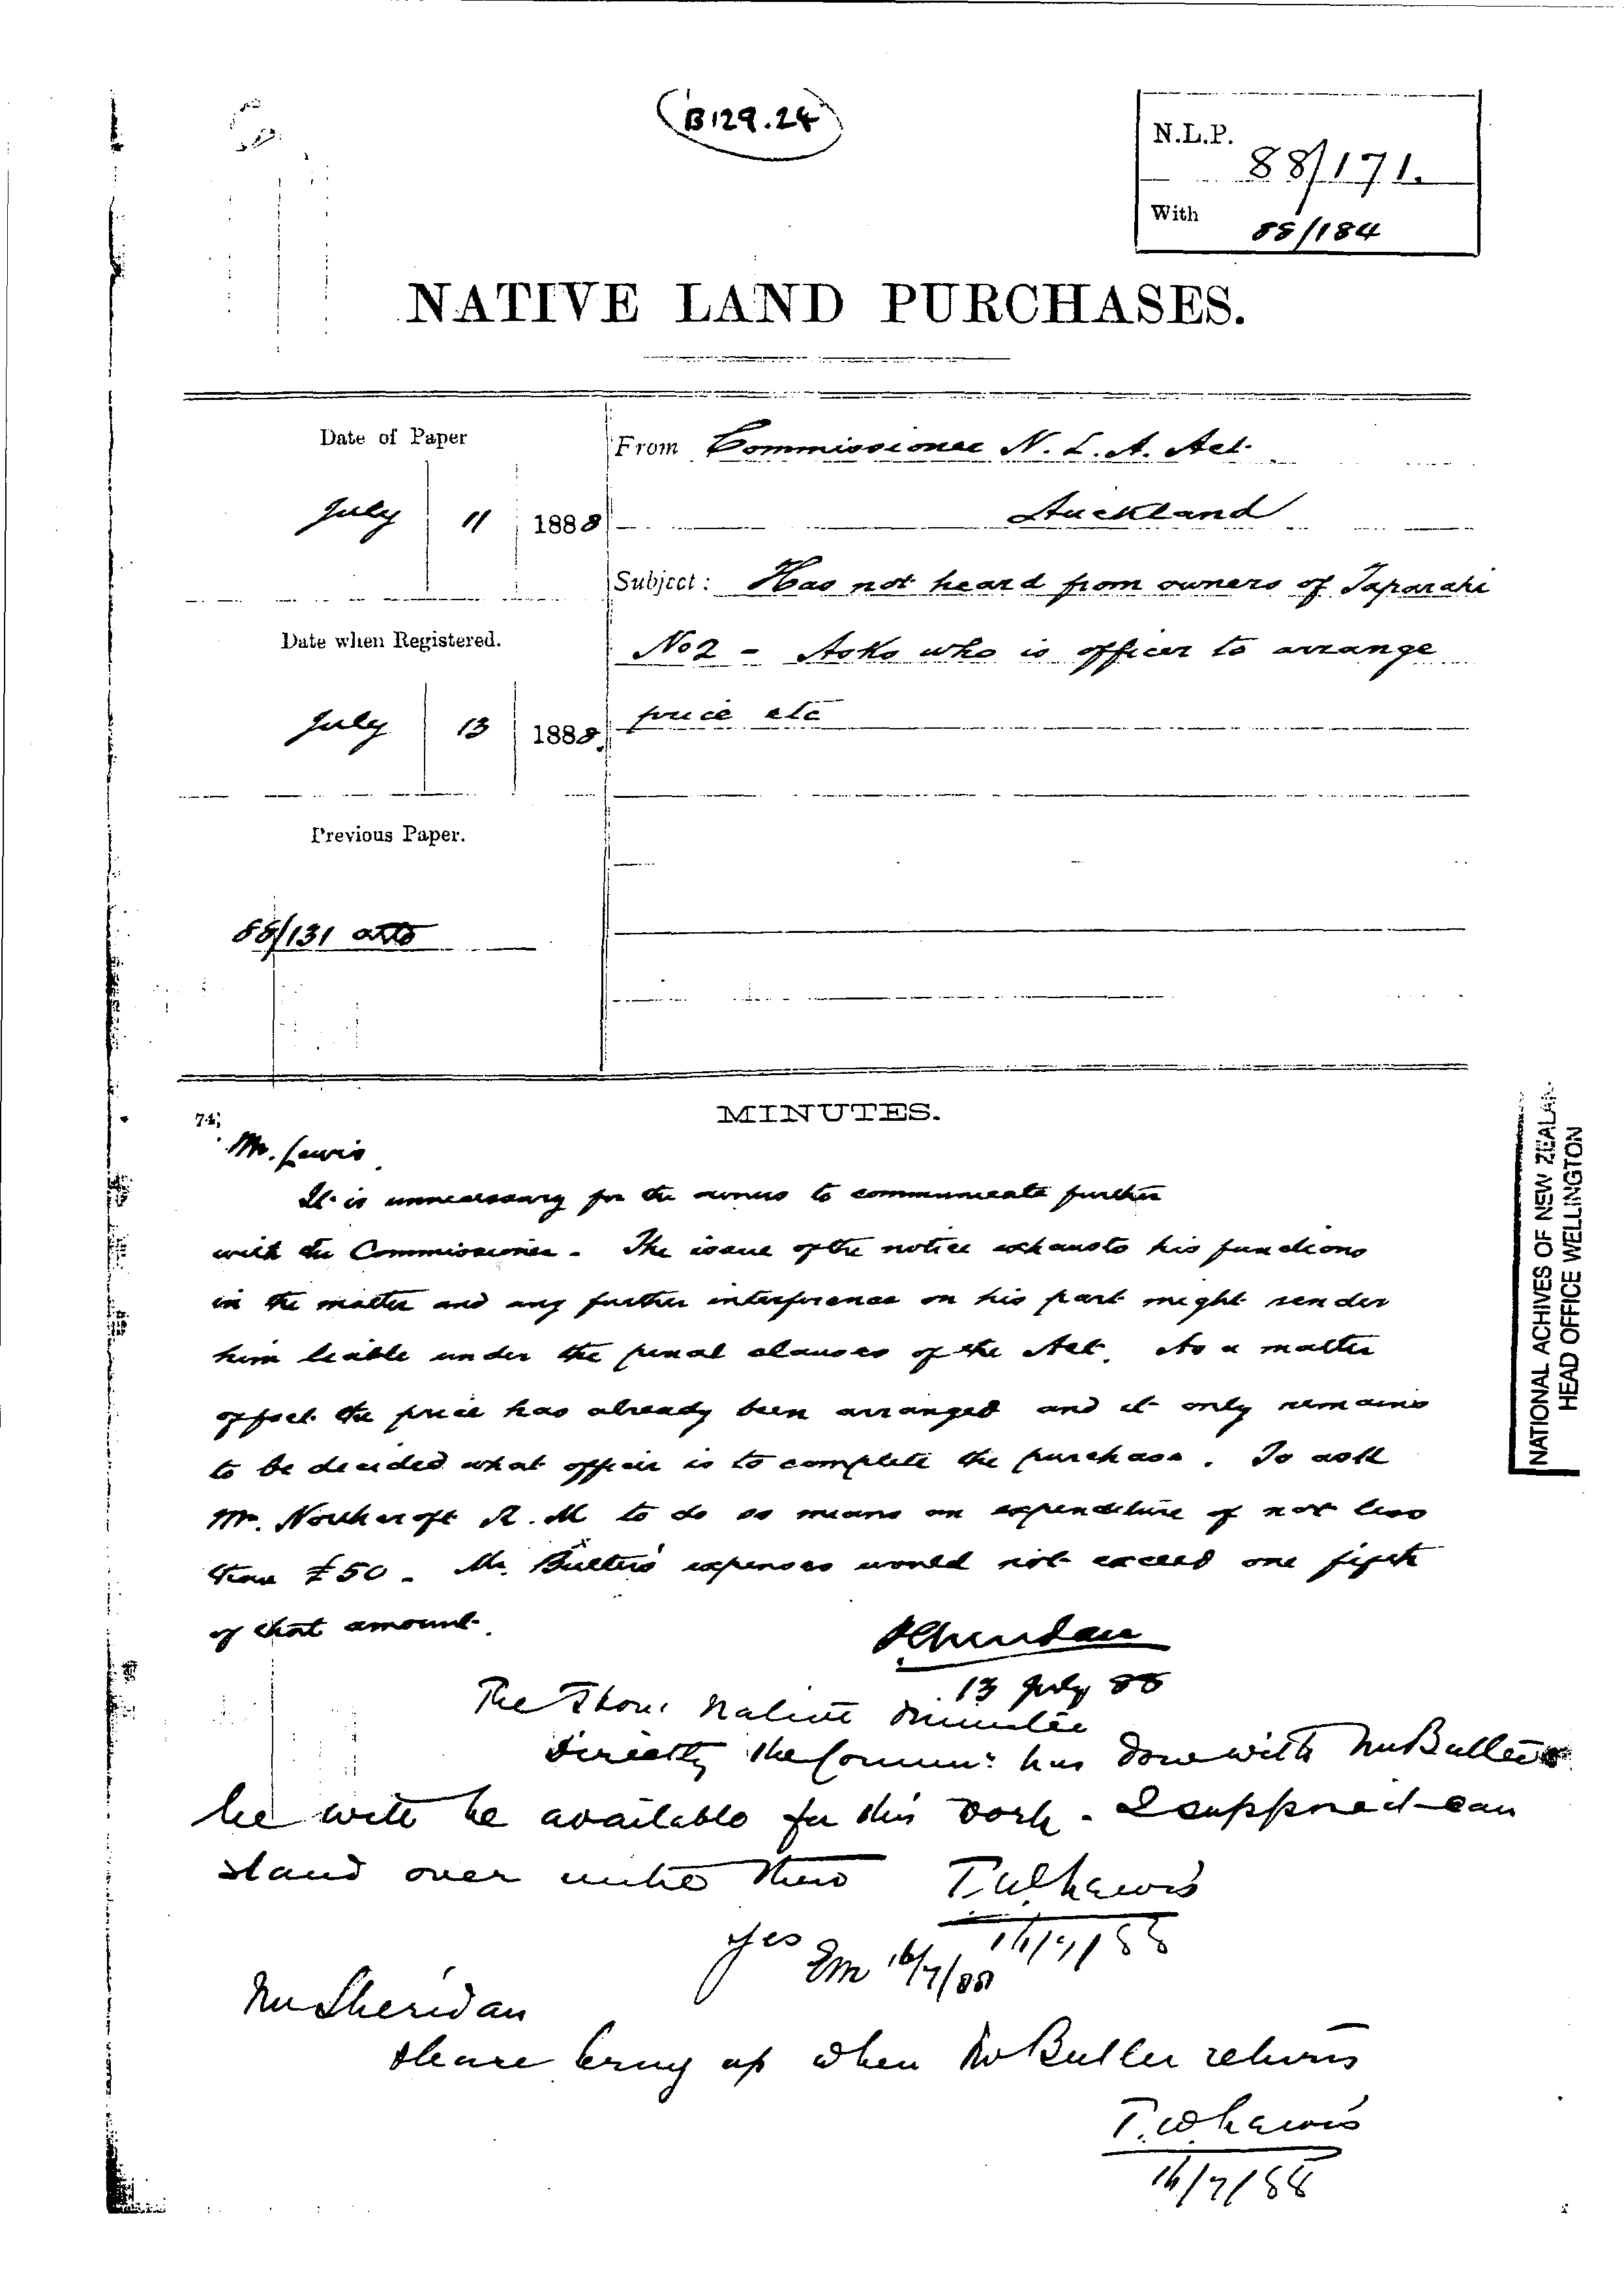 B129.24
N.L.P.
88/171.
With
88/184
NATIVE LAND PURCHASES.
Date of Paper
July 11 1888
From Commissioner N. L. A. Act
Auckland
Subject: Has not heard from owners of Taparahi
No 2 - Asks who is officer to arrange
price etc
Date when Registered.
July 13 1888.
Previous Paper.
88/131
MINUTES.
74;
Mr. Lewis
It is unnecessary for the owners to communicate further
with the Commissioner - The issue of the notice exhausts his functions
in the matter and any further interference on his part might render
him liable under the penal clauses of the Act. As a matter
of fact the price has already been arranged and it only remains
to be decided what officer is to complete the purchase. To ask
Mr. Northcroft R. M to do so means an expenditure of not less
than £50 - Mr. Butler's expenses would not exceed one fifth
of that amount.
PSheridan
13 July 88
The Hon. Native Minister
Directly the Commr. has done with Mr Butler
he will be available for this work - I suppose it can
stand over until then T.W.Lewis
16/7/88
yes
EM 16/7/88
Mr Sheridan
Please bring up when Mr Butler returns
T.W.Lewis
16/7/88
NATIONAL ACHIVES OF NEW ZEALAN
HEAD OFFICE WELLINGTON